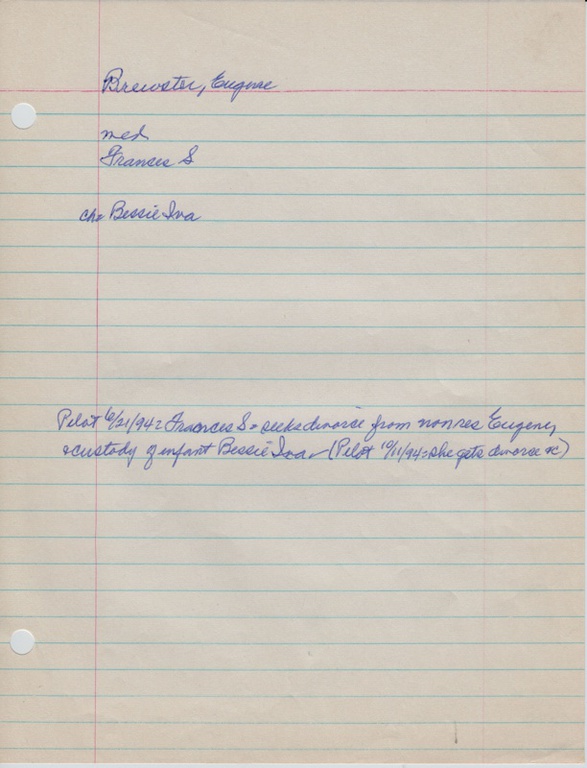 Brewster, Eugene
med
Frances S
ch= Bessie Iva
Pilot 6/21/94= Frances S= seeks divorce from nonres Eugene,
& custody of infant Bessie Iva - (Pilot 10/11/94= she gets divorce &c)